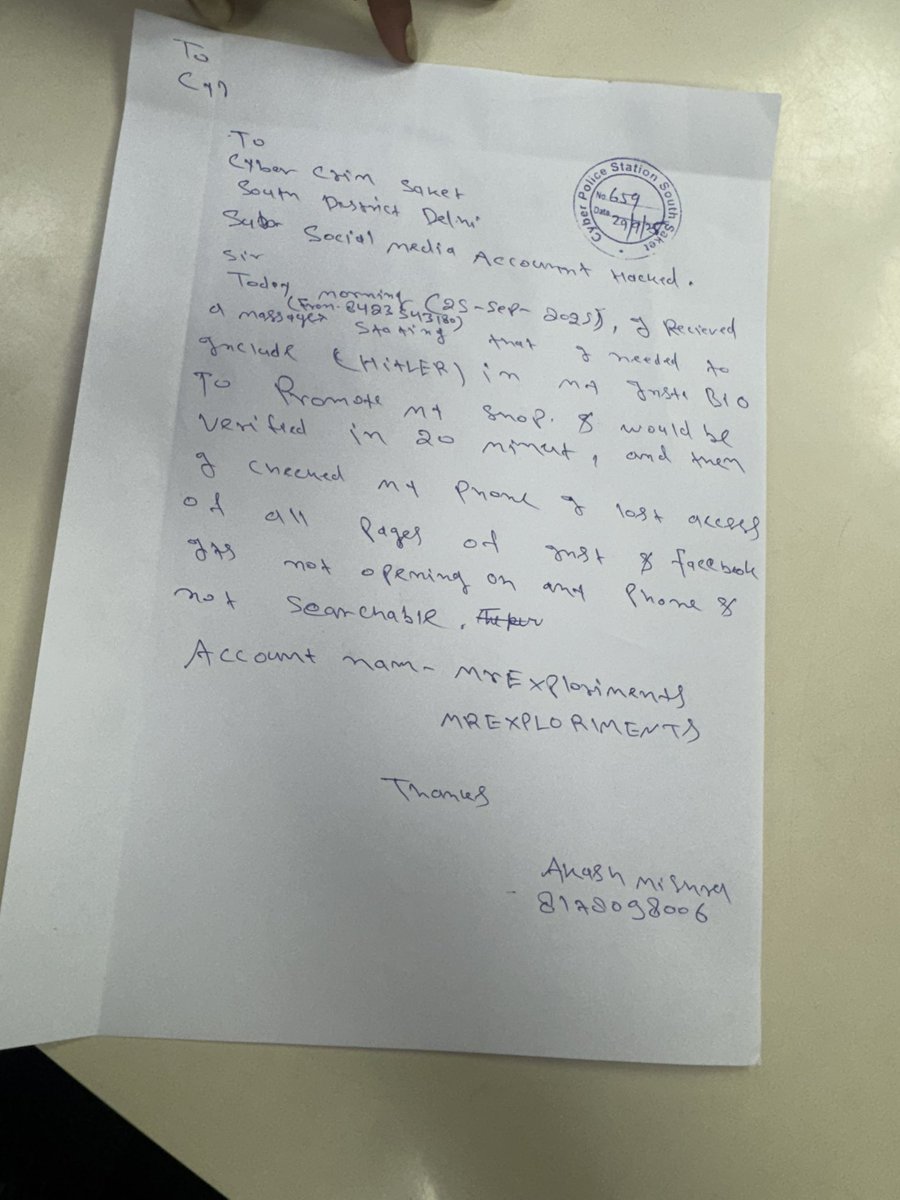 To
Cyb
To
Cyber Crim Saket
South District Delhi
Sub Social media Account Hacked.
Sir
Today morning (25-Sep-2025), I Recieved
(From- 8423543180)
a massages stating that I needed to
Include (HiTLER) in my Insta BIO
To Promote my shop. & would be
verified in 20 minut, and then
I checked my Phone I lost access
of all Pages of Inst & facebook
Its not opening on any Phone &
not Searchable.
Account nam- MrExploriments
MREXPLORIMENTS
Thanks
Akash Mishra
8178098006
Cyber Police Station South Saket
No. 659
Date 29/9/25